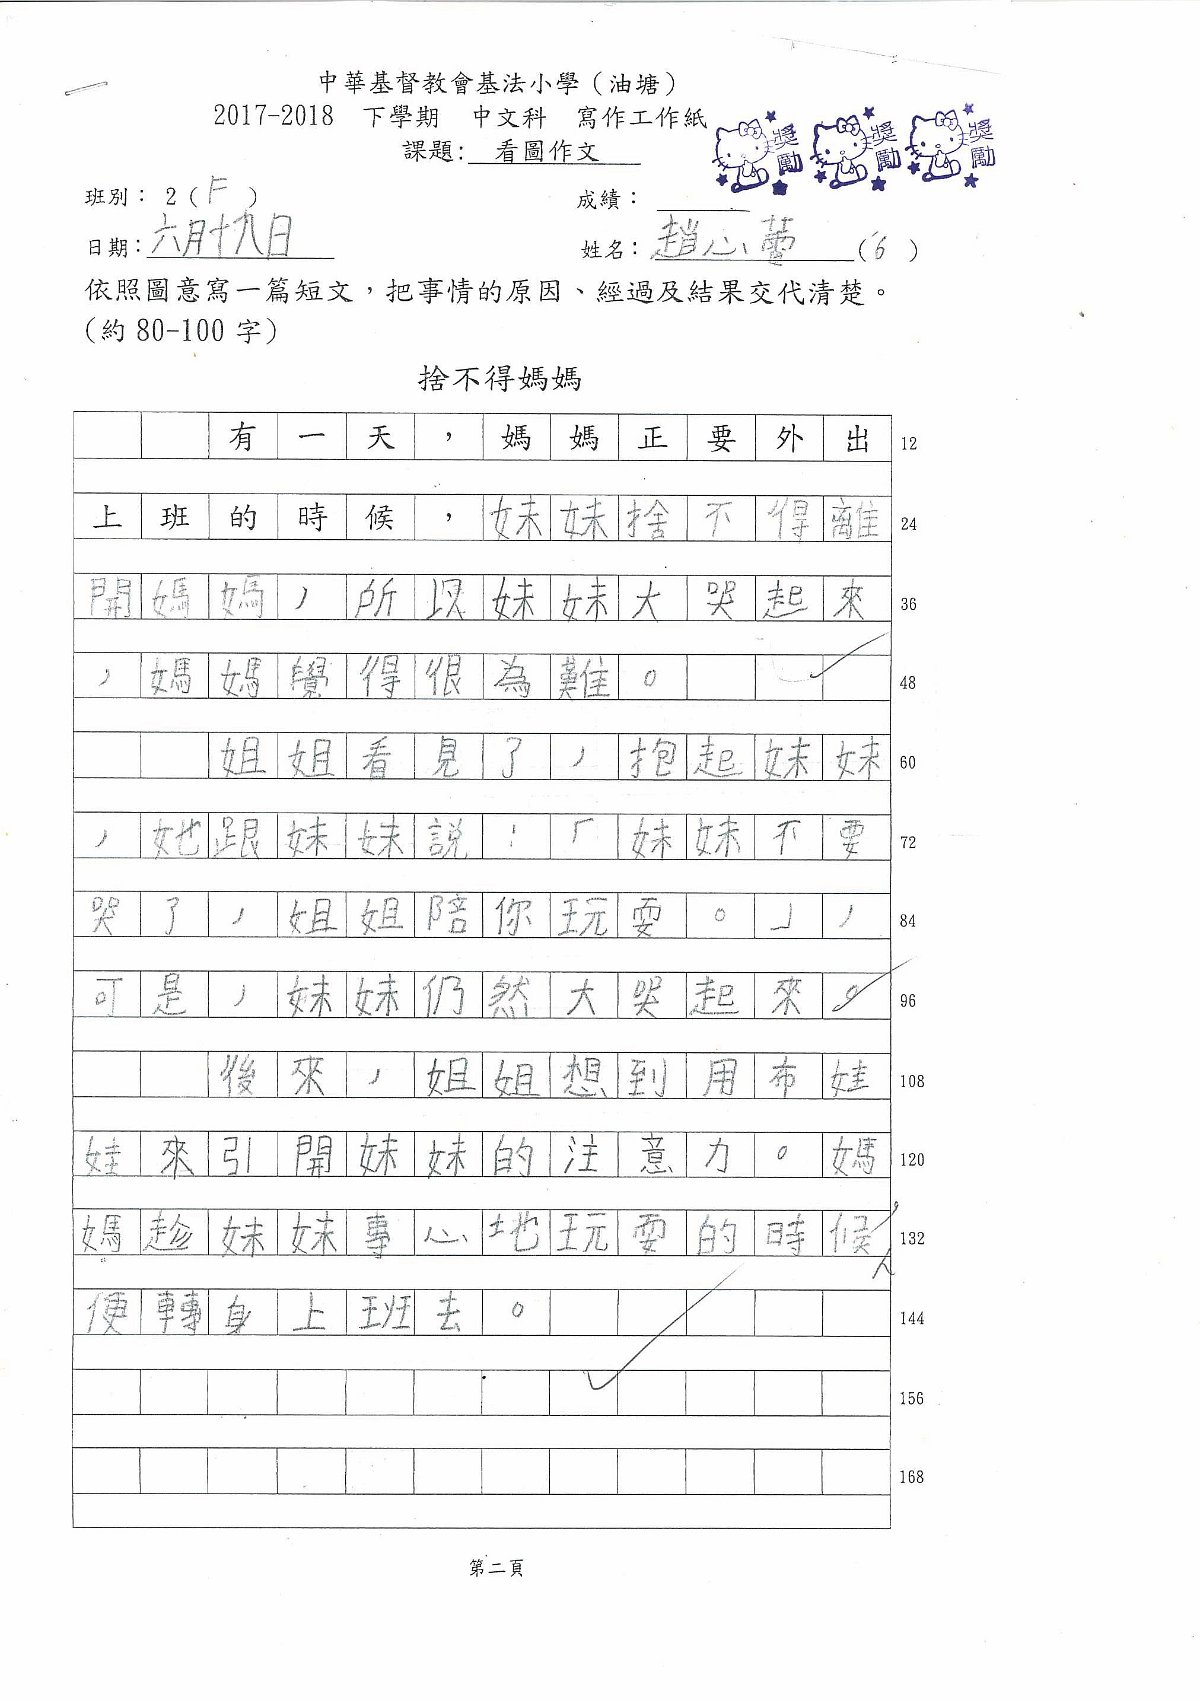 中華基督教會基法小學（油塘）
2017-2018 下學期 中文科 寫作工作紙
課題: 看圖作文
獎勵 獎勵 獎勵
班別： 2（F）
成績：
日期: 六月十九日
姓名: 趙心蕎 (6)
依照圖意寫一篇短文，把事情的原因、經過及結果交代清楚。
(約 80-100 字)
捨不得媽媽
有一天，媽媽正要外出 12
上班的時候，妹妹捨不得離 24
開媽媽，所以妹妹大哭起來 36
，媽媽覺得很為難。 48
姐姐看見了，抱起妹妹 60
，她跟妹妹說：「妹妹不要 72
哭了，姐姐陪你玩耍。」， 84
可是，妹妹仍然大哭起來。 96
後來，姐姐想到用布娃 108
娃來引開妹妹的注意力。媽 120
媽趁妹妹專心地玩耍的時候， 132
便轉身上班去。 144
156
168
第二頁